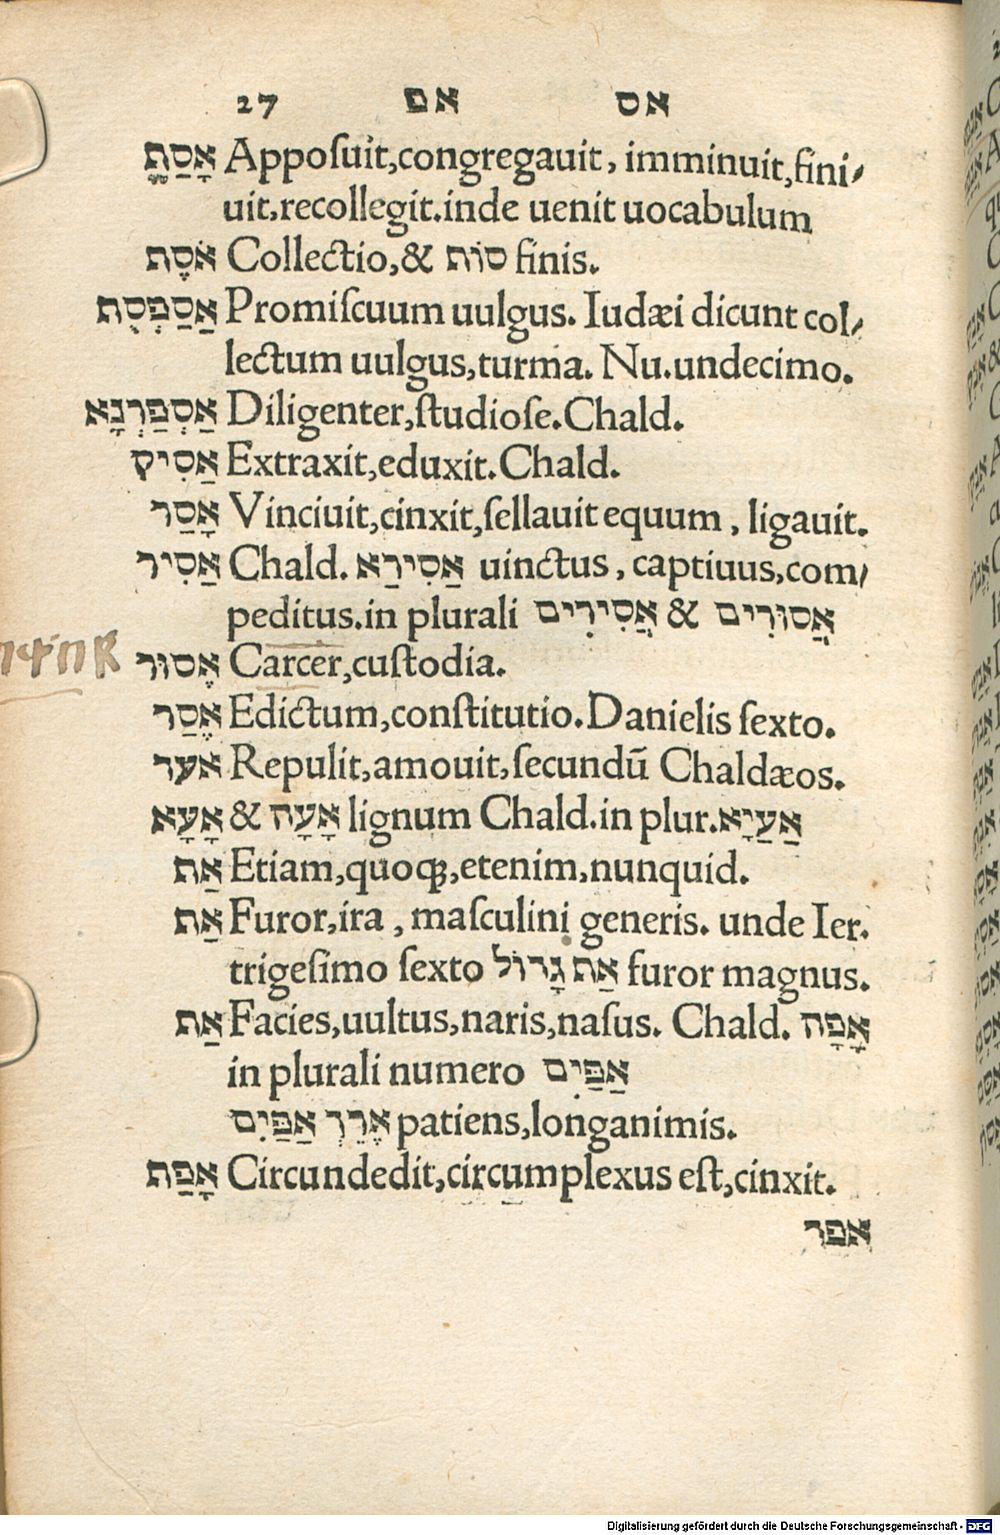 27 אם אס
אָסַף Appoſuit,congregauit, imminuit,fini⸗
uit,recollegit.inde uenit uocabulum
אֹסֶף Collectio,& סוֹף finis.
אֲסַפְסֻף Promiſcuum uulgus. Iudæi dicunt col⸗
lectum uulgus,turma. Nu.undecimo.
אַסְפַּרְנָא Diligenter,ſtudioſe.Chald.
אַסִיק Extraxit,eduxit.Chald.
אָסַר Vinciuit,cinxit,ſellauit equum, ligauit.
אַסִיר Chald. אַסִירַא uinctus, captiuus,com⸗
peditus.in plurali אֲסִירִים & אֲסוּרִים
אֱסוּר Carcer,cuſtodia.
אֱסַר Edictum,conſtitutio.Danielis ſexto.
אער Repulit,amouit,ſecundū Chaldæos.
אָעָא & אָעָה lignum Chald.in plur.אַעַיָא
אַף Etiam,quoqꝫ,etenim,nunquid.
אַף Furor,ira, maſculini generis. unde Ier.
trigeſimo ſexto אַף גָּדוֹל furor magnus.
אַף Facies,uultus,naris,naſus. Chald. אָפָּה
in plurali numero אַפַּיִם
אֶרֵךְ אַפַּיִם patiens,longanimis.
אָפַף Circundedit,circumplexus eſt,cinxit.
אפר
Digitalisierung gefördert durch die Deutsche Forschungsgemeinschaft - DFG